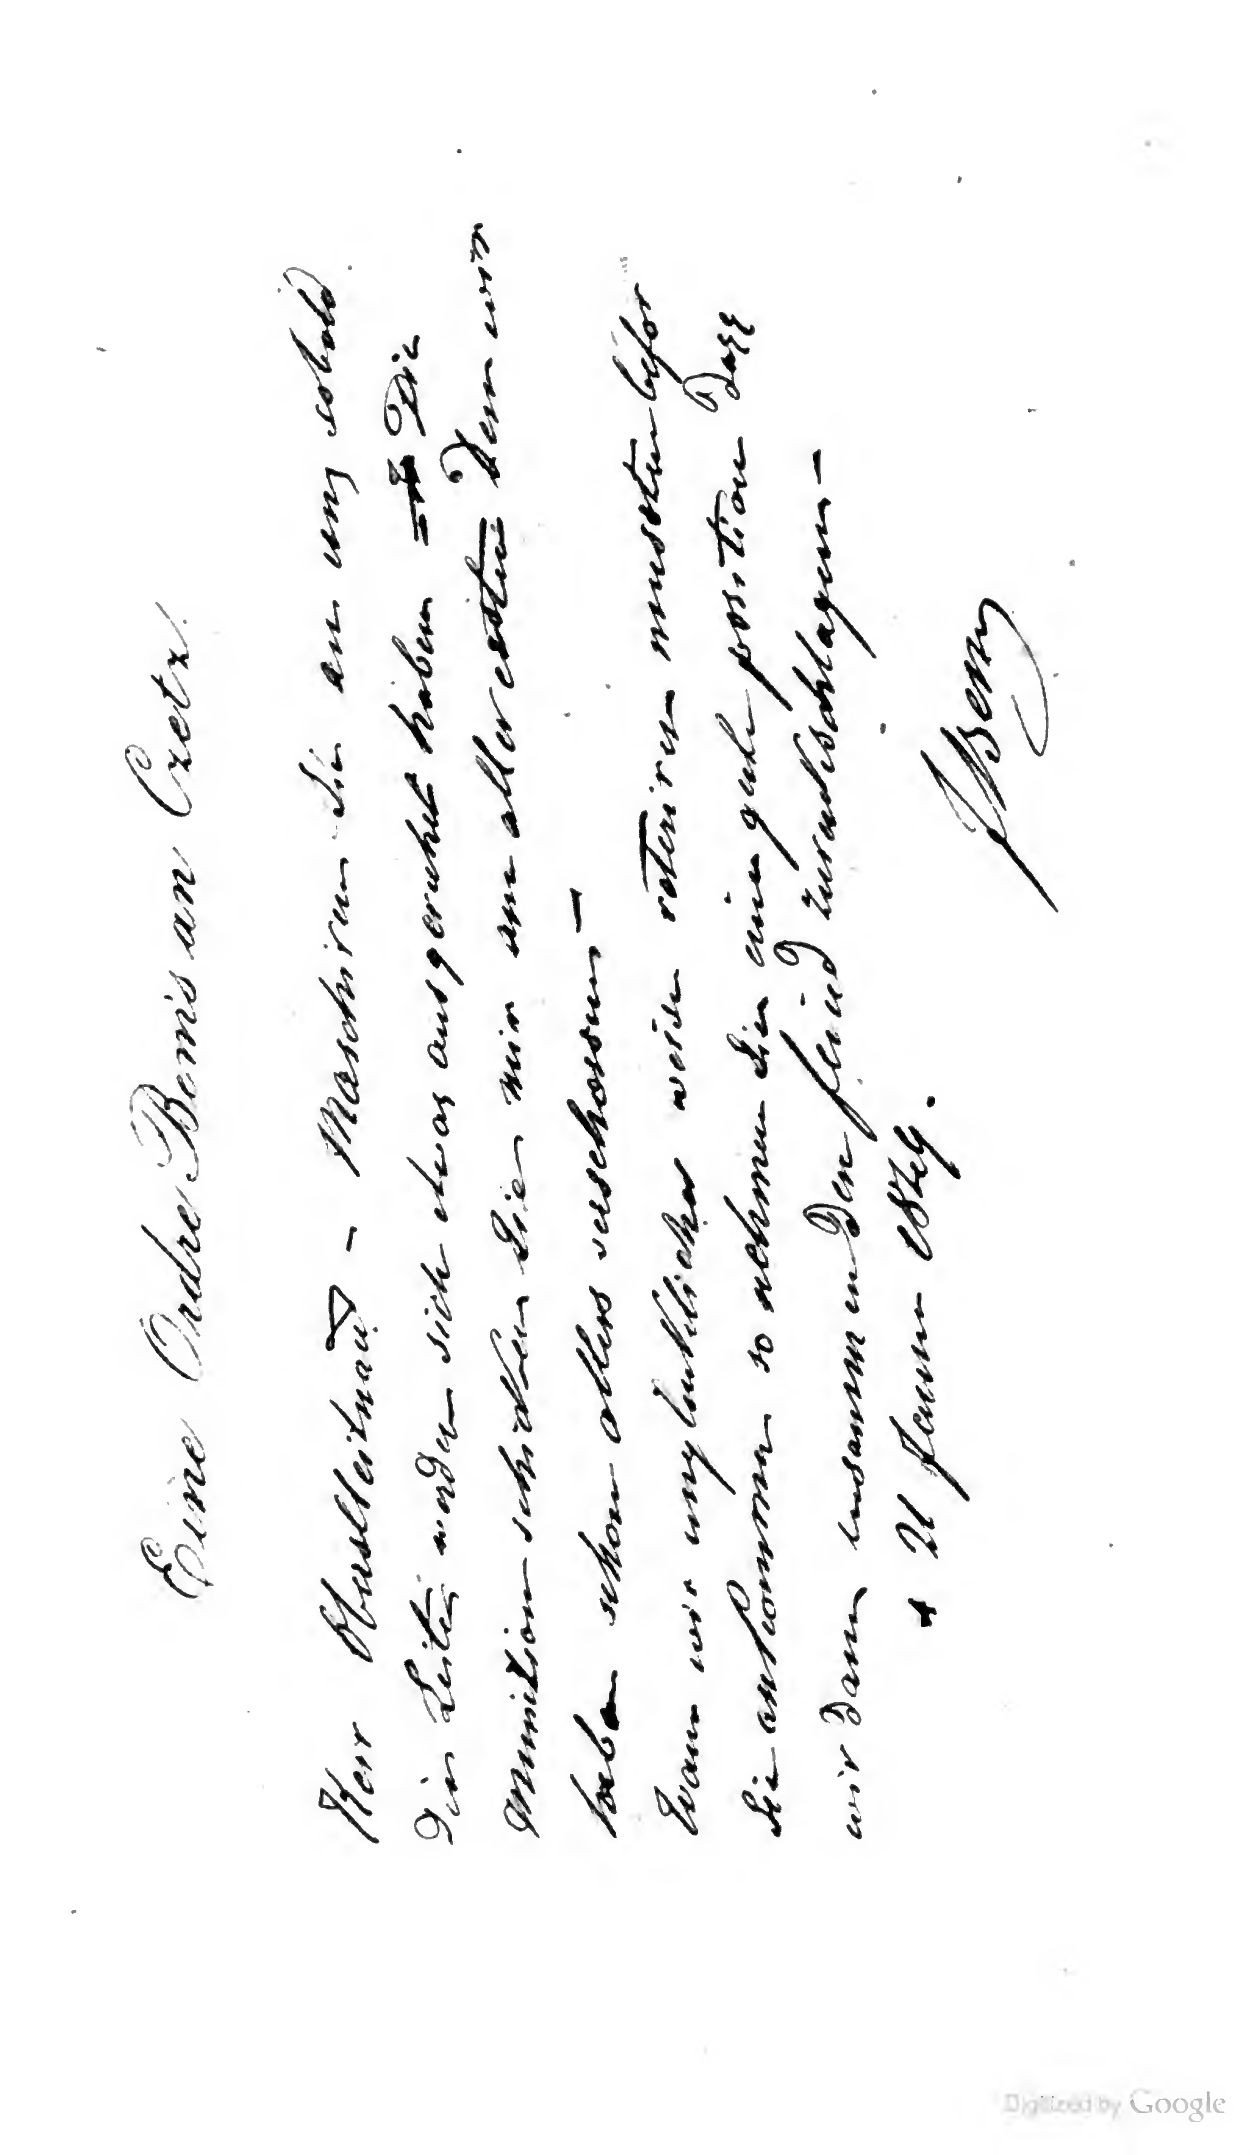 Eine Ordre Bem's an Czetz.
Herr Oberstleitnand – Maschiren Sie an uns sobald
Die Leite werden sich etwas ausgeruhet haben Die
Munition schikken Sie mir am allerersten Denn wir
haben schon alles verschossen –
Wann wir unglukliche weise reteriren mussten befor
Sie ankommen so nehmen Sie eine gute position Dass
wir Dann zusammen Den feind zurukschlagen –
21 Janner 1849.
J Bem
Digitized by Google